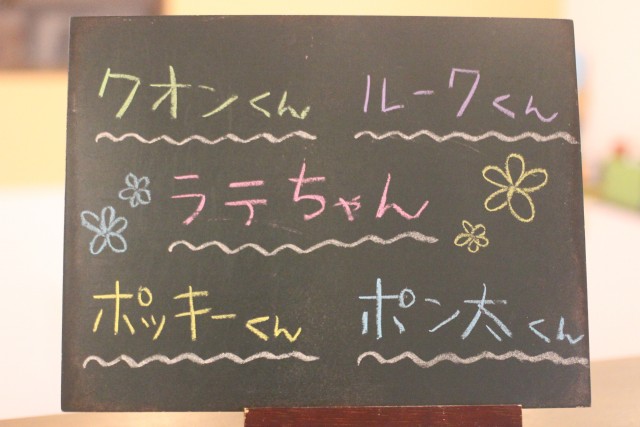 クオンくん ルークくん
ラテちゃん
ポッキーくん ポン太くん